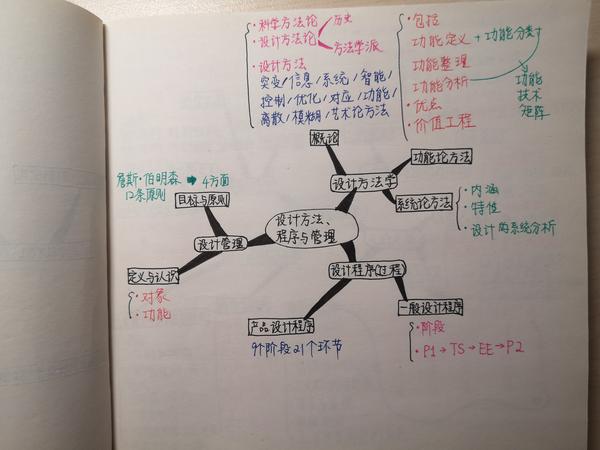 · 科学方法论
· 设计方法论
历史
方法学派
· 设计方法
突变/信息/系统/智能/
控制/优化/对应/功能/
离散/模糊/艺术论方法
· 包括
功能定义 + 功能分类
功能整理
功能分析
· 优点
· 价值工程
功能
技术
矩阵
概论
功能论方法
设计方法学
系统论方法
· 内涵
· 特性
· 设计的系统分析
詹斯·伯明森 → 4方面
12条原则
目标与原则
设计管理
设计方法、
程序与管理
定义与认识
· 对象
· 功能
设计程序(过程)
产品设计程序
9个阶段21个环节
一般设计程序
· 阶段
· P1→TS→EE→P2